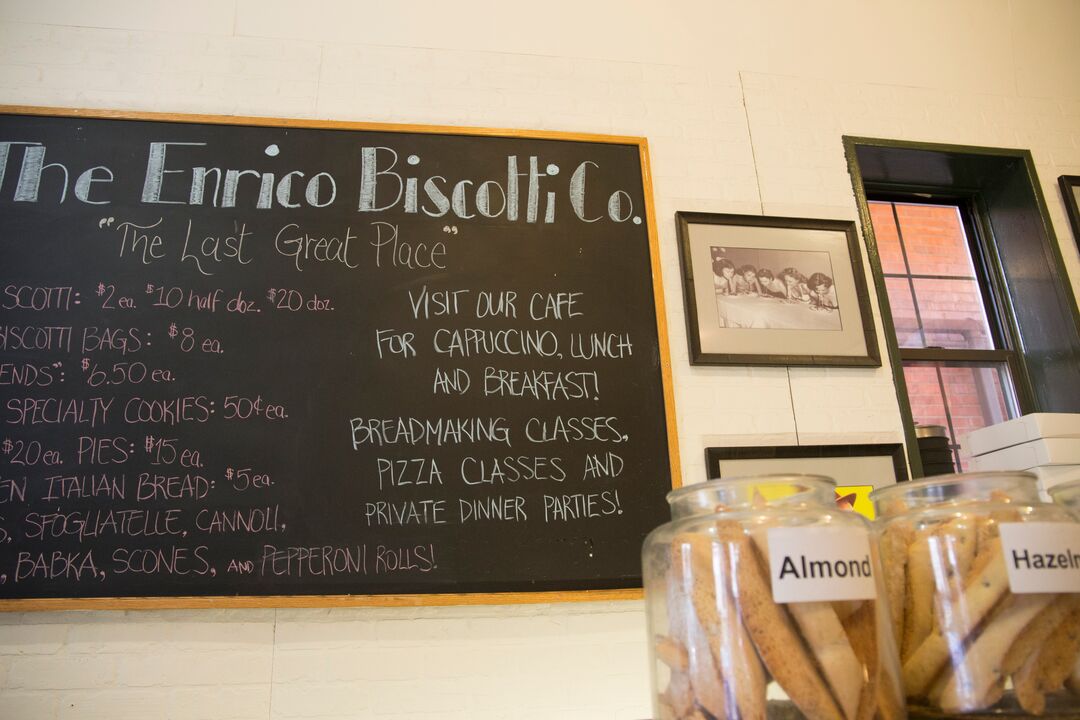 The Enrico Biscotti Co.
"The Last Great Place"
SCOTTI: $2 ea. $10 half doz. $20 doz.
BISCOTTI BAGS: $8 ea.
ENDS": $6.50 ea.
SPECIALTY COOKIES: 50¢ ea.
$20 ea. PIES: $15 ea.
EN ITALIAN BREAD: $5 ea.
S, SFOGLIATELLE, CANNOLI,
, BABKA, SCONES, AND PEPPERONI ROLLS!
VISIT OUR CAFE
FOR CAPPUCCINO, LUNCH
AND BREAKFAST!
BREADMAKING CLASSES,
PIZZA CLASSES AND
PRIVATE DINNER PARTIES!
Almond
Hazeln